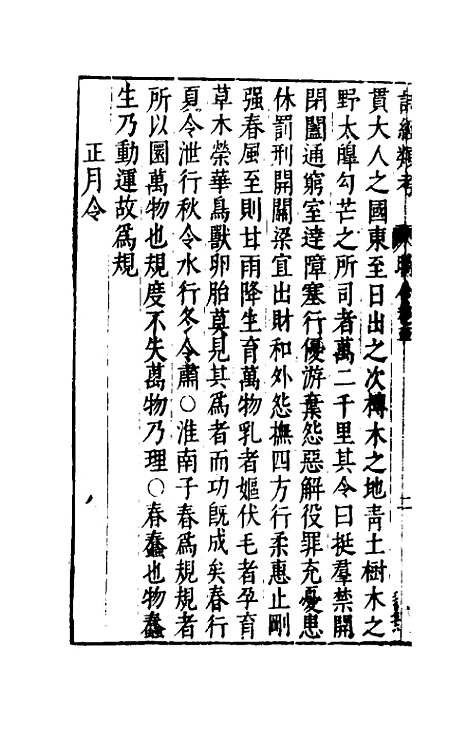 詩經類考
二
貫大人之國東至日出之次榑木之地靑土樹木之
野太皡勾芒之所司者萬二千里其令曰挺羣禁開
閉闔通窮室達障塞行優游棄怨惡解役罪充憂患
休罰刑開關梁宜出財和外怨撫四方行柔惠止剛
强春風至則甘雨降生育萬物乳者嫗伏毛者孕育
草木榮華鳥獸卵胎莫見其爲者而功旣成矣春行
夏令泄行秋令水行冬令肅○淮南子春爲規規者
所以圜萬物也規度不失萬物乃理○春蠢也物蠢
生乃動運故爲規
正月令